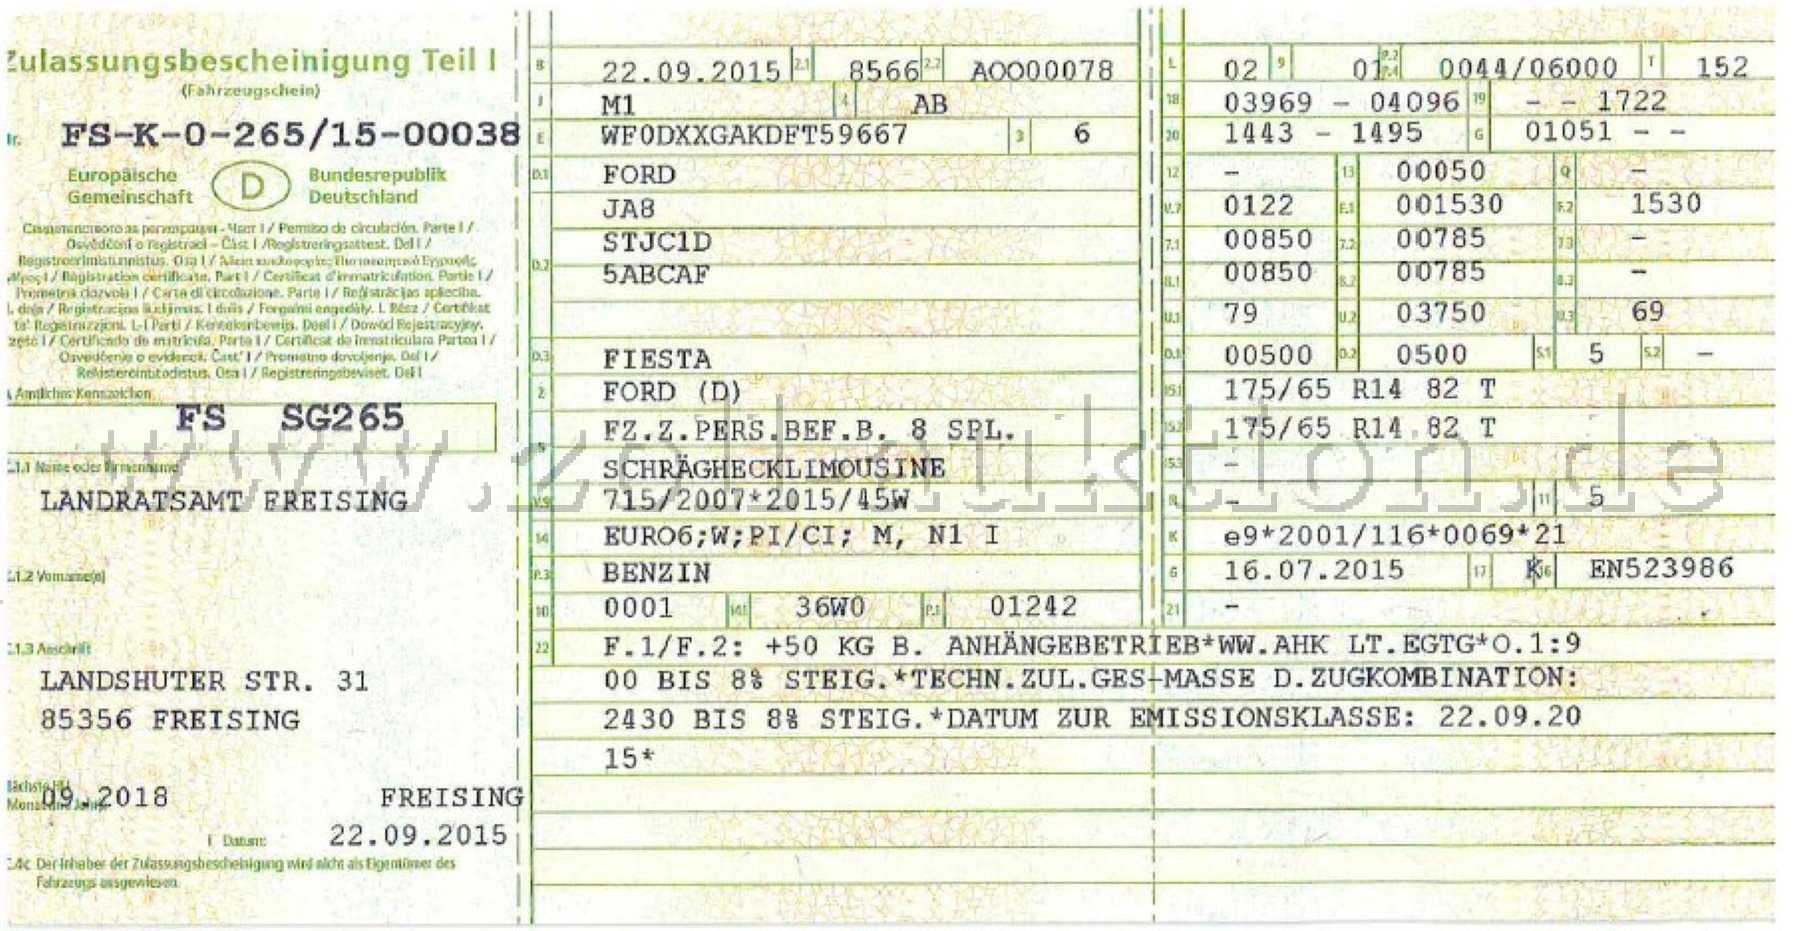 Zulassungsbescheinigung Teil I
(Fahrzeugschein)
Nr. FS-K-0-265/15-00038
Europäische Gemeinschaft D Bundesrepublik Deutschland
Permiso de circulación. Parte I /
Osvědčení o registraci – Část I /Registreringsattest. Del I /
Registreerimistunnistus. Osa I /
Registration certificate. Part I / Certificat d'immatriculation. Partie I /
Prometna dozvola I / Carta di circolazione. Parte I / Reģistrācijas apliecība.
I. daļa / Registracijos liudijimas. I dalis / Forgalmi engedély. I. Rész / Certifikat
ta' Reġistrazzjoni. L-I Parti / Kentekenbewijs. Deel I / Dowód Rejestracyjny.
Część I / Certificado de matrícula. Parte I / Certificat de înmatriculare Partea I /
Osvedčenie o evidencii. Časť I / Prometno dovoljenje. Del I /
Rekisteröintitodistus. Osa I / Registreringsbeviset. Del I
A Amtliches Kennzeichen
FS SG265
C.1.1 Name oder Firmenname
LANDRATSAMT FREISING
C.1.2 Vorname(n)
C.1.3 Anschrift
LANDSHUTER STR. 31
85356 FREISING
Nächste HU
Monat und Jahr
09.2018 FREISING
I Datum: 22.09.2015
C.4c Der Inhaber der Zulassungsbescheinigung wird nicht als Eigentümer des
Fahrzeugs ausgewiesen.
B 22.09.2015 2.1 8566 2.2 AOO00078
J M1 4 AB
E WF0DXXGAKDFT59667 3 6
D.1 FORD
JA8
STJC1D
D.2 5ABCAF
D.3 FIESTA
2 FORD (D)
FZ.Z.PERS.BEF.B. 8 SPL.
5 SCHRÄGHECKLIMOUSINE
V.9 715/2007*2015/45W
14 EURO6;W;PI/CI; M, N1 I
P.3 BENZIN
10 0001 14.1 36W0 P.1 01242
L 02 9 01 P.2 P.4 0044/06000 T 152
18 03969 - 04096 19 - - 1722
20 1443 - 1495 G 01051 - -
12 - 13 00050 Q -
V.7 0122 F.1 001530 F.2 1530
7.1 00850 7.2 00785 7.3 -
8.1 00850 8.2 00785 8.3 -
U.1 79 U.2 03750 U.3 69
O.1 00500 O.2 0500 S.1 5 S.2 -
15.1 175/65 R14 82 T
15.2 175/65 R14 82 T
15.3 -
R - 11 5
K e9*2001/116*0069*21
6 16.07.2015 17 K 16 EN523986
21 -
22 F.1/F.2: +50 KG B. ANHÄNGEBETRIEB*WW.AHK LT.EGTG*O.1:9
00 BIS 8% STEIG.*TECHN.ZUL.GES-MASSE D.ZUGKOMBINATION:
2430 BIS 8% STEIG.*DATUM ZUR EMISSIONSKLASSE: 22.09.20
15*
www.zoll-auktion.de